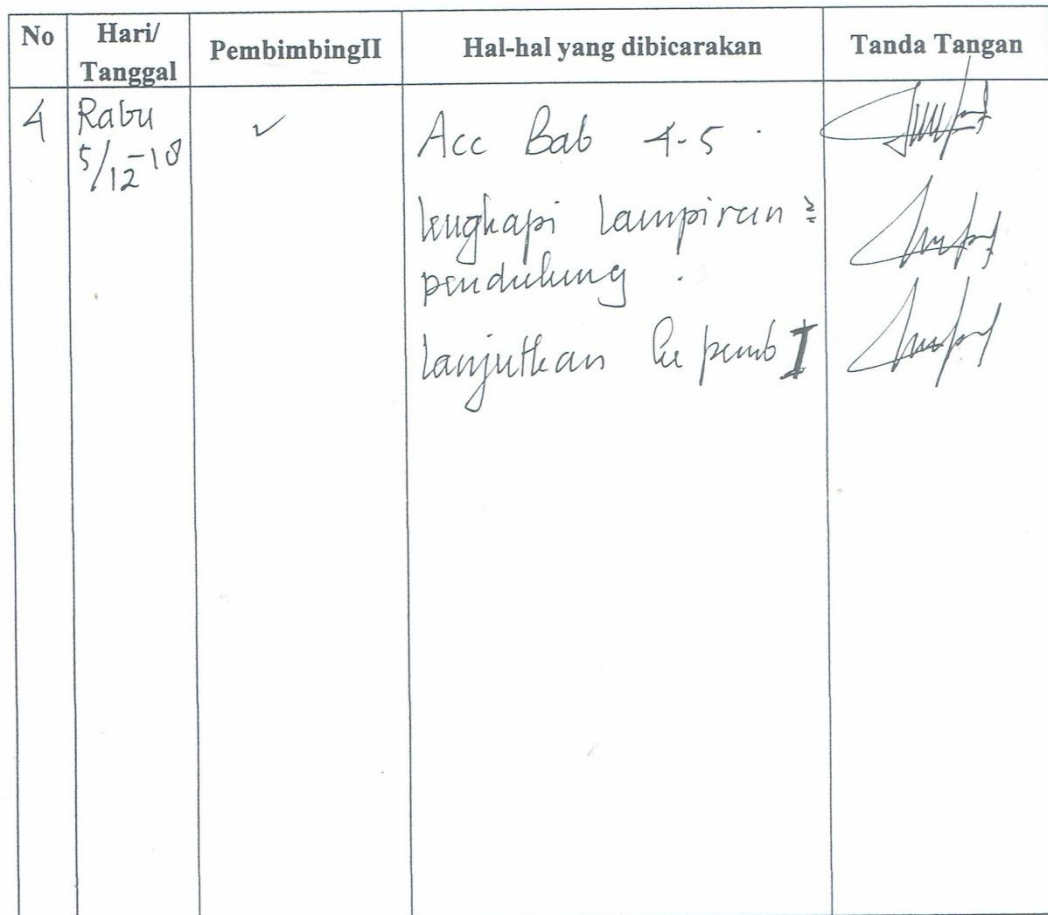 No Hari/ Tanggal PembimbingII Hal-hal yang dibicarakan Tanda Tangan
4 Rabu ✓ Acc Bab 4-5.
5/12-18
lengkapi lampiran2
pendukung.
lanjutkan ke pemb I